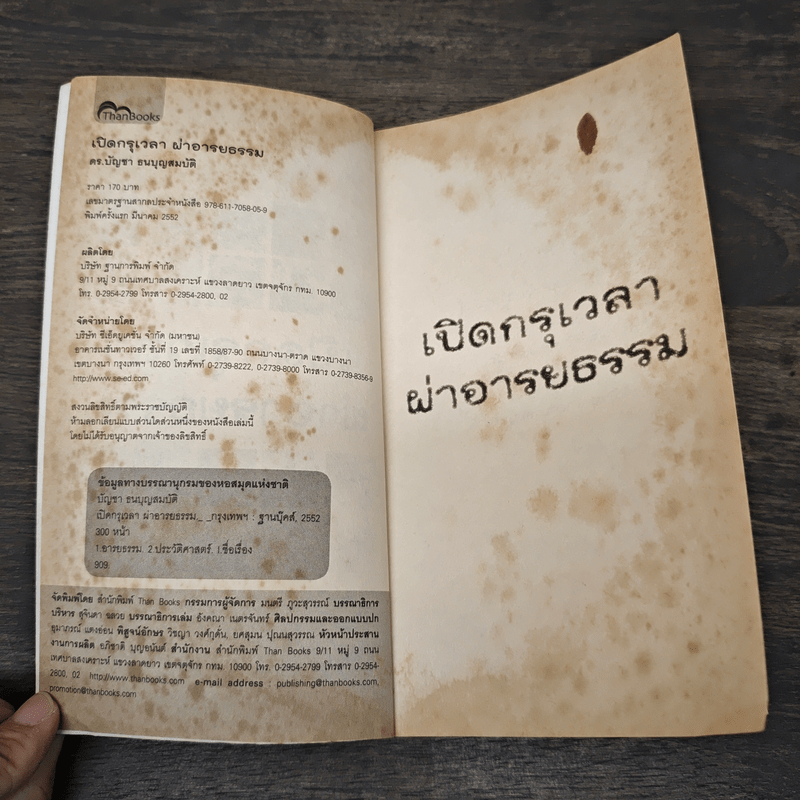 ThanBooks
เปิดกรุเวลา ผ่าอารยธรรม
ดร.บัญชา ธนบุญสมบัติ
ราคา 170 บาท
เลขมาตรฐานสากลประจำหนังสือ 978-611-7058-05-9
พิมพ์ครั้งแรก มีนาคม 2552
ผลิตโดย
บริษัท ฐานการพิมพ์ จำกัด
9/11 หมู่ 9 ถนนเทศบาลสงเคราะห์ แขวงลาดยาว เขตจตุจักร กทม. 10900
โทร. 0-2954-2799 โทรสาร 0-2954-2800, 02
จัดจำหน่ายโดย
บริษัท ซีเอ็ดยูเคชั่น จำกัด (มหาชน)
อาคารเนชั่นทาวเวอร์ ชั้นที่ 19 เลขที่ 1858/87-90 ถนนบางนา-ตราด แขวงบางนา
เขตบางนา กรุงเทพฯ 10260 โทรศัพท์ 0-2739-8222, 0-2739-8000 โทรสาร 0-2739-8356-9
http://www.se-ed.com
สงวนลิขสิทธิ์ตามพระราชบัญญัติ
ห้ามลอกเลียนแบบส่วนใดส่วนหนึ่งของหนังสือเล่มนี้
โดยไม่ได้รับอนุญาตจากเจ้าของลิขสิทธิ์
ข้อมูลทางบรรณานุกรมของหอสมุดแห่งชาติ
บัญชา ธนบุญสมบัติ
เปิดกรุเวลา ผ่าอารยธรรม._ _กรุงเทพฯ : ฐานบุ๊คส์, 2552
300 หน้า
1.อารยธรรม. 2.ประวัติศาสตร์. I.ชื่อเรื่อง
909
จัดพิมพ์โดย สำนักพิมพ์ Than Books กรรมการผู้จัดการ มนตรี ภูวะสุวรรณ์ บรรณาธิการ
บริหาร สุจินดา ขลวย บรรณาธิการเล่ม อังคณา เนตรจันทร์ ศิลปกรรมและออกแบบปก
อุมาภรณ์ แดงอ่อน พิสูจน์อักษร วิชญา วงศ์ภูดัน, ยศสุมน ปุณนสุวรรณ หัวหน้าประสาน
งานการผลิต อภิชาติ บุญอนันต์ สำนักงาน สำนักพิมพ์ Than Books 9/11 หมู่ 9 ถนน
เทศบาลสงเคราะห์ แขวงลาดยาว เขตจตุจักร กทม. 10900 โทร. 0-2954-2799 โทรสาร 0-2954-
2800, 02 http://www.thanbooks.com e-mail address : publishing@thanbooks.com,
promotion@thanbooks.com
เปิดกรุเวลา
ผ่าอารยธรรม